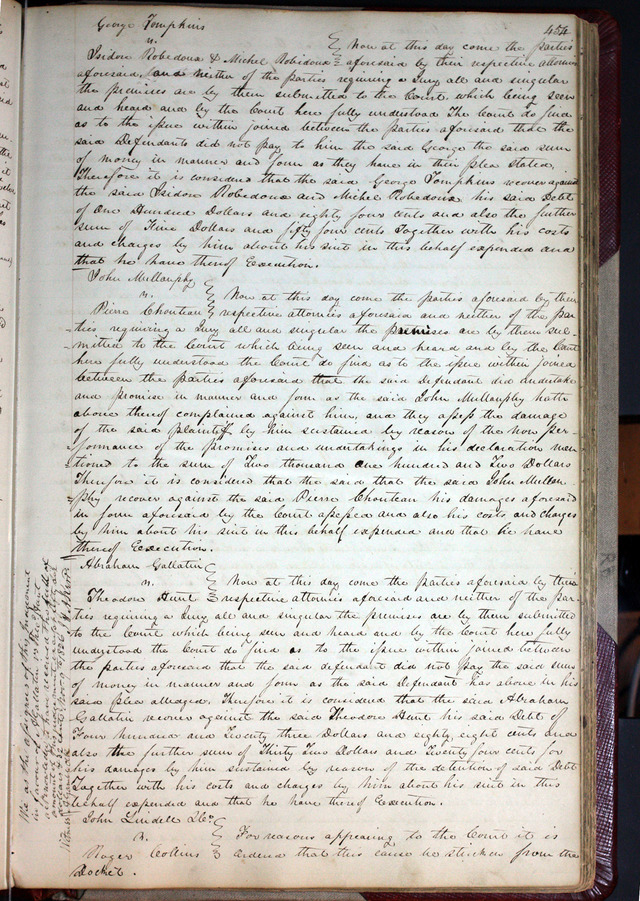 454
George Tompkins
vs.
Now at this day come the parties
Isidore Robedoux & Michel Robidoux aforesaid by their respective attornies
aforesaid, and neither of the parties requiring a Jury all and singular
the premises are by them submitted to the Court, which being seen
and heard and by the Court here fully understood The Court do find
as to the issue within joined between the Parties aforesaid that the
said Defendants did not pay to him the said George the said sum
of money in manner and form as they have in their plea stated,
Therefore it is considered that the said George Tompkins recover against
the said Isidore Robedoux and Michel Robedoux his said Debt
of One Hundred Dollars and eighty four cents and also the further
sum of Nine Dollars and fifty four cents Together with his costs
and charges by him about his suit in this behalf expended and
that he have thereof Execution.
John Mullanphy
vs.
Now at this day come the parties aforesaid by their
Pierre Chouteau respective attornies aforesaid and neither of the par-
ties requiring a Jury all and singular the premises are by them sub-
mitted to the Court which being seen and heard and by the Court
here fully understood the Court do find as to the issue within joined
between the Parties aforesaid that the said Defendant did undertake
and promise in manner and form as the said John Mullanphy hath
above thereof complained against him, and they assess the damage
of the said plaintiff by him sustained by reason of the non per-
formance of the promises and undertakings in his declaration men-
tioned to the sum of Two thousand one hundred and Two Dollars
Therefore it is considered that the said that the said John Mullan-
phy recover against the said Pierre Chouteau his damages aforesaid
in form aforesaid by the Court assessed and also his costs and charges
by him about his suit in this behalf expended and that he have
thereof Execution.
Abraham Gallatin
vs.
Now at this day come the parties aforesaid by their
Theodore Hunt respective attornies aforesaid and neither of the par-
ties requiring a Jury all and singular the premises are by them submitted
to the Court which being seen and heard and by the Court here fully
understood the Court do find as to the issue within joined between
the parties aforesaid that the said defendant did not pay the said sum
of money in manner and form as the said Defendant has above in his
said plea alledged. Therefore it is considered that the said Abraham
Gallatin recover against the said Theodore Hunt his said Debt of
Four hundred and Twenty three Dollars and eighty eight cents and
also the further sum of Thirty Two Dollars and Twenty four cents for
his damages by him sustained by reason of the detention of said Debt
Together with his costs and charges by him about his suit in this
behalf expended and that he have thereof Execution.
John Lindell & Co
vs.
For reasons appearing to the Court it is
Roger Collins ordered that this cause be stricken from the
Docket.
in favour of A Gallatin vs Theo. Hunt